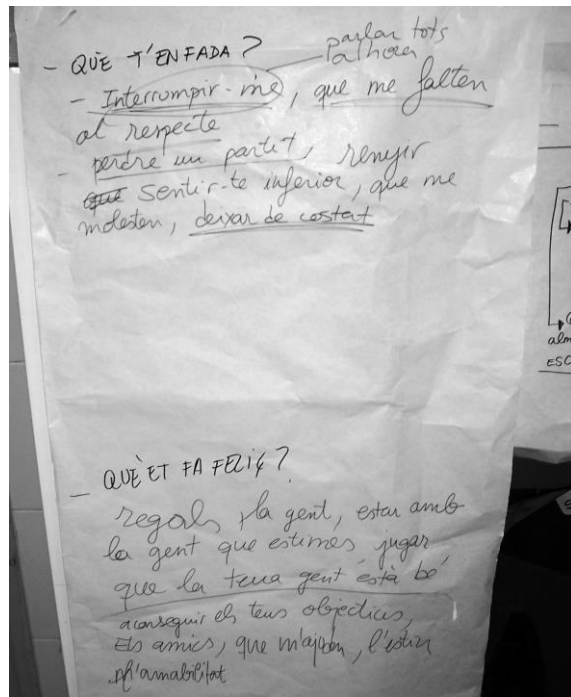 - QUÈ T'ENFADA?
parlar tots
alhora
- Interrompir-me, que me falten
al respecte
- perdre un partit, renyir
sentir-te inferior, que me
molesten, deixar de costat
- QUÈ ET FA FELIÇ?
regals, la gent, estar amb
la gent que estimes jugar
que la teua gent està bé
aconseguir els teus objectius,
Els amics, que m'ajuden, l'estiu
l'amabilitat
alm
ESC